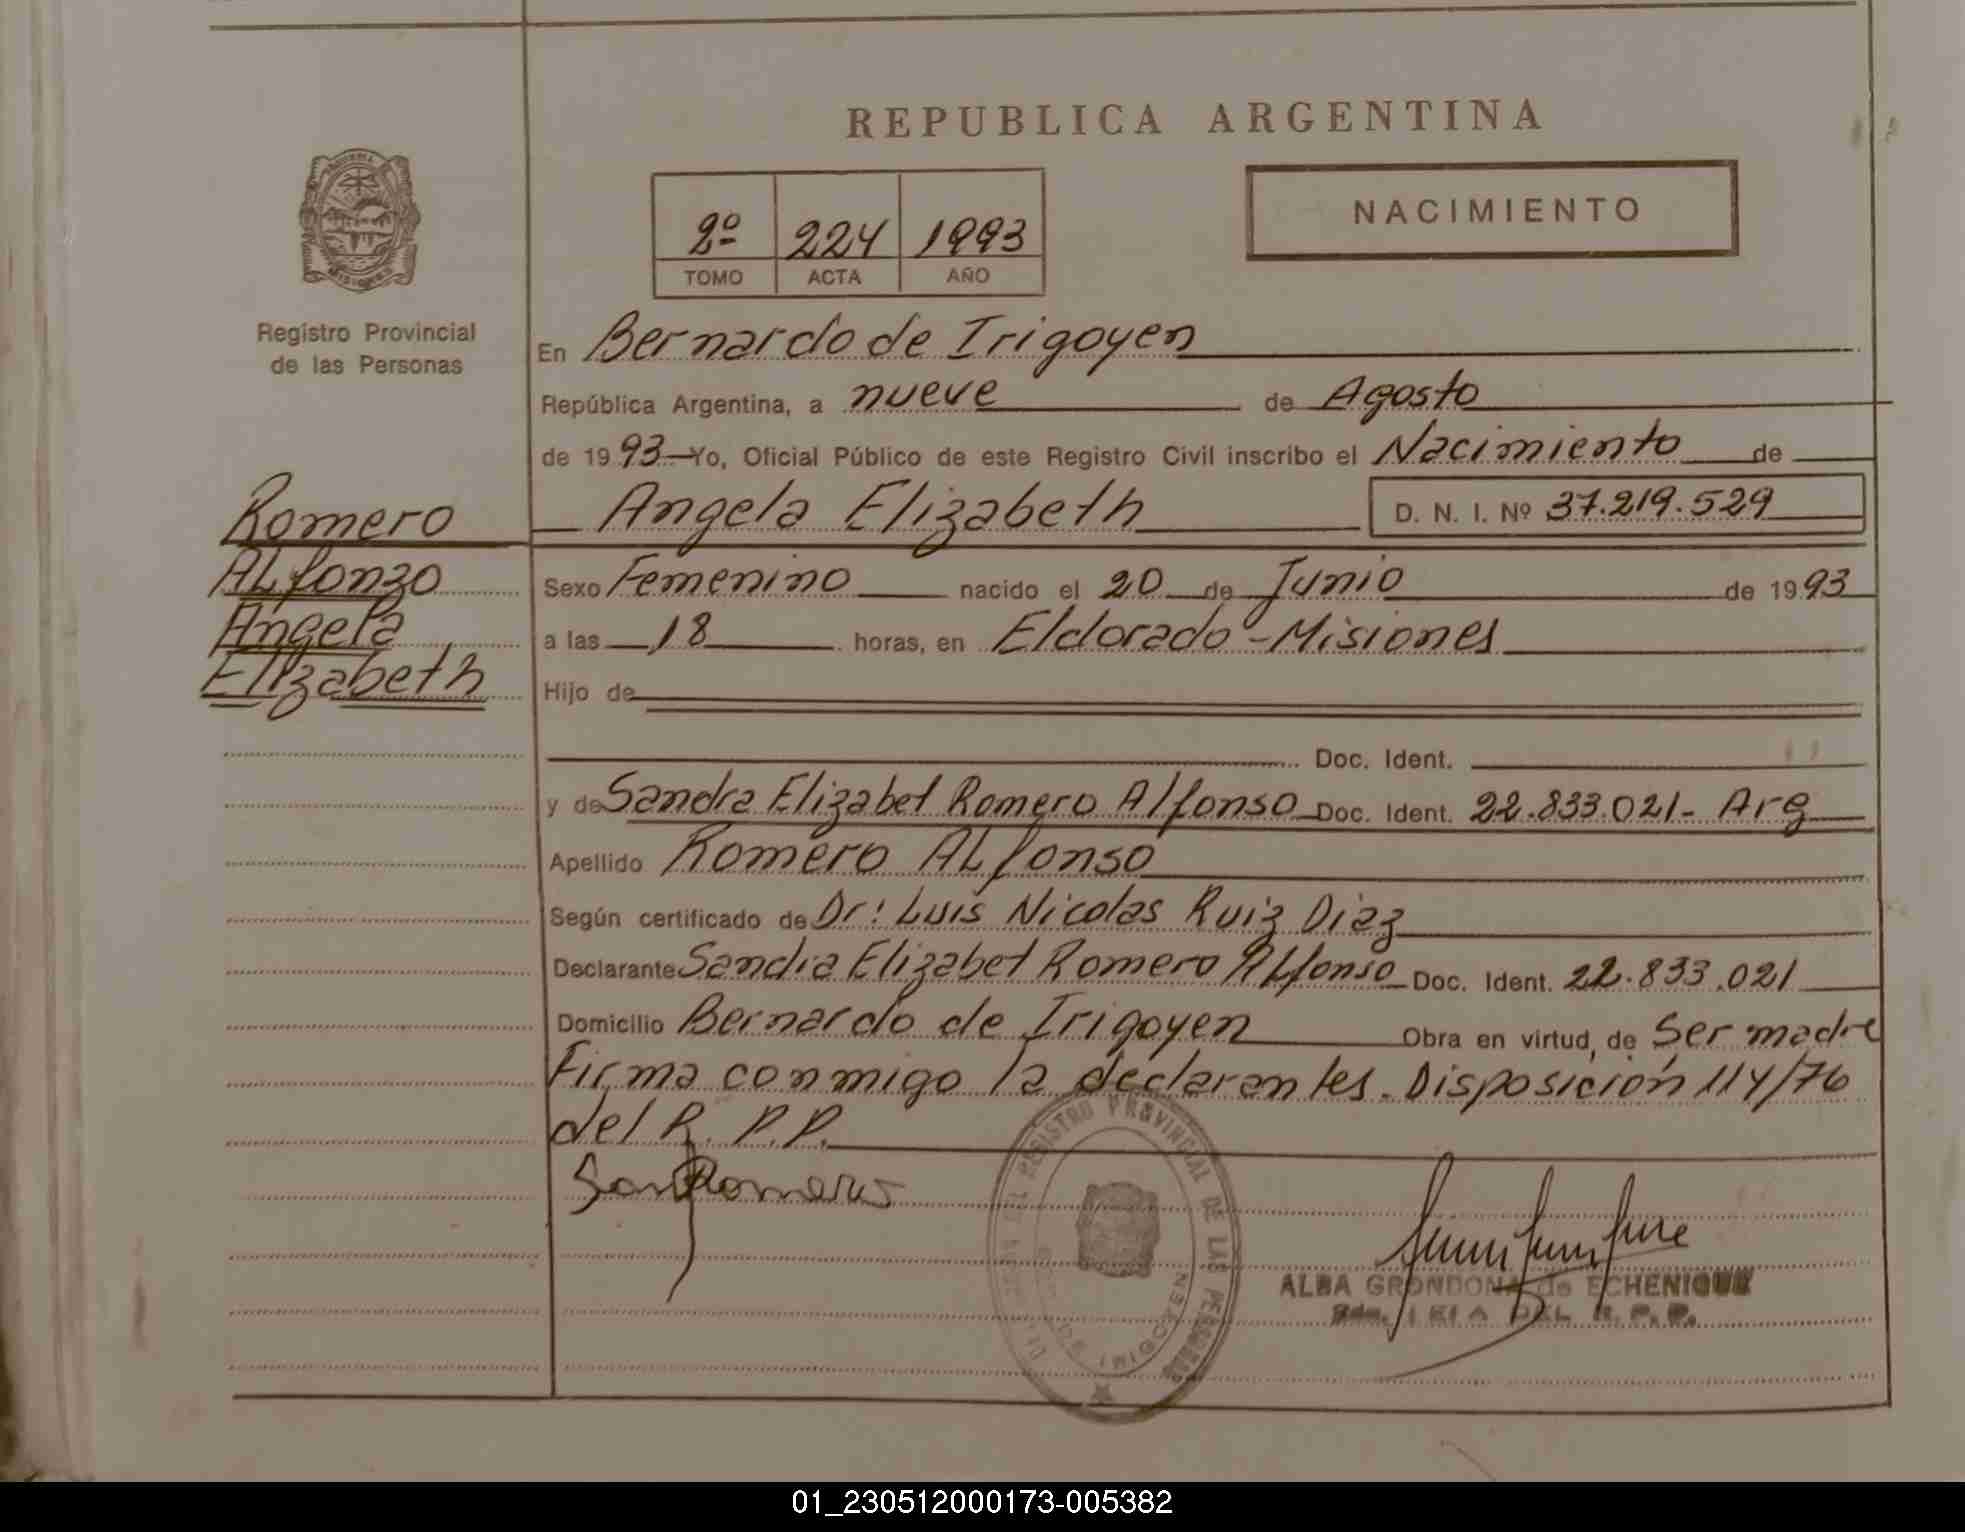 REPUBLICA ARGENTINA
2º 224 1993
TOMO ACTA AÑO
NACIMIENTO
Registro Provincial
de las Personas
Romero
ALfonzo
Angela
Elizabeth
En Bernardo de Irigoyen
República Argentina, a nueve de Agosto
de 1993 Yo, Oficial Público de este Registro Civil inscribo el Nacimiento de
Angela Elizabeth D. N. I. Nº 37.219.529
Sexo Femenino nacido el 20 de Junio de 1993
a las 18 horas, en Eldorado - Misiones
Hijo de
Doc. Ident.
y de Sandra Elizabet Romero Alfonso Doc. Ident. 22.833.021- Arg
Apellido Romero ALfonso
Según certificado de Dr: Luis Nicolas Ruiz Diaz
Declarante Sandra Elizabet Romero ALfonso Doc. Ident. 22.833.021
Domicilio Bernardo de Irigoyen Obra en virtud, de Ser madre
Firma conmigo la declarantes. Disposición 114/76
del R. P. P.
REGISTRO PROVINCIAL DE LAS PERSONAS
IRIGOYEN
ALBA GRONDONA de ECHENIQUE
DEL R. P. P.
01_230512000173-005382